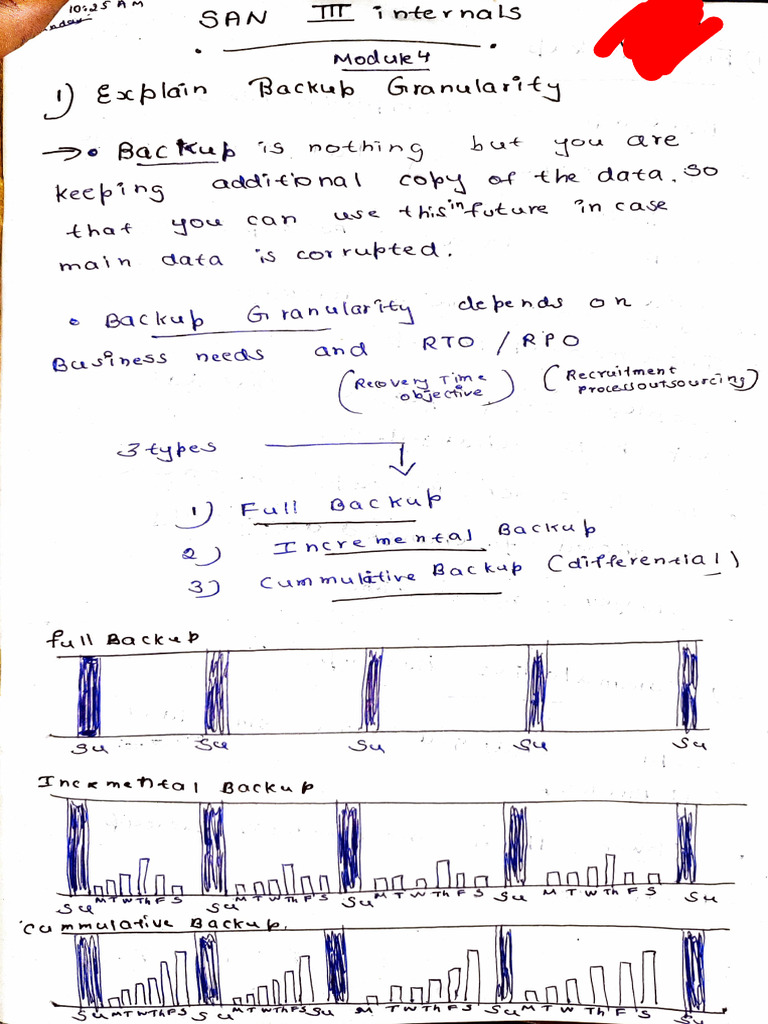 10:25 AM
SAN III internals
Module 4
1) Explain Backup Granularity
→ • Backup is nothing but you are
keeping additional copy of the data. so
that you can use this in future in case
main data is corrupted.
• Backup Granularity depends on
Business needs and RTO / RPO
(Recovery Time objective) (Recruitment processoutsourcing)
3 types
1) Full Backup
2) Incremental Backup
3) Cummulative Backup (differential)
full Backup
Su Su Su Su Su
Incremental Backup
Su M T W Th F S Su M T W Th F S Su M T W Th F S Su M T W Th F S Su
Cummulative Backup.
Su M T W Th F S Su M T W Th F S Su M T W Th F S Su M T W Th F S Su